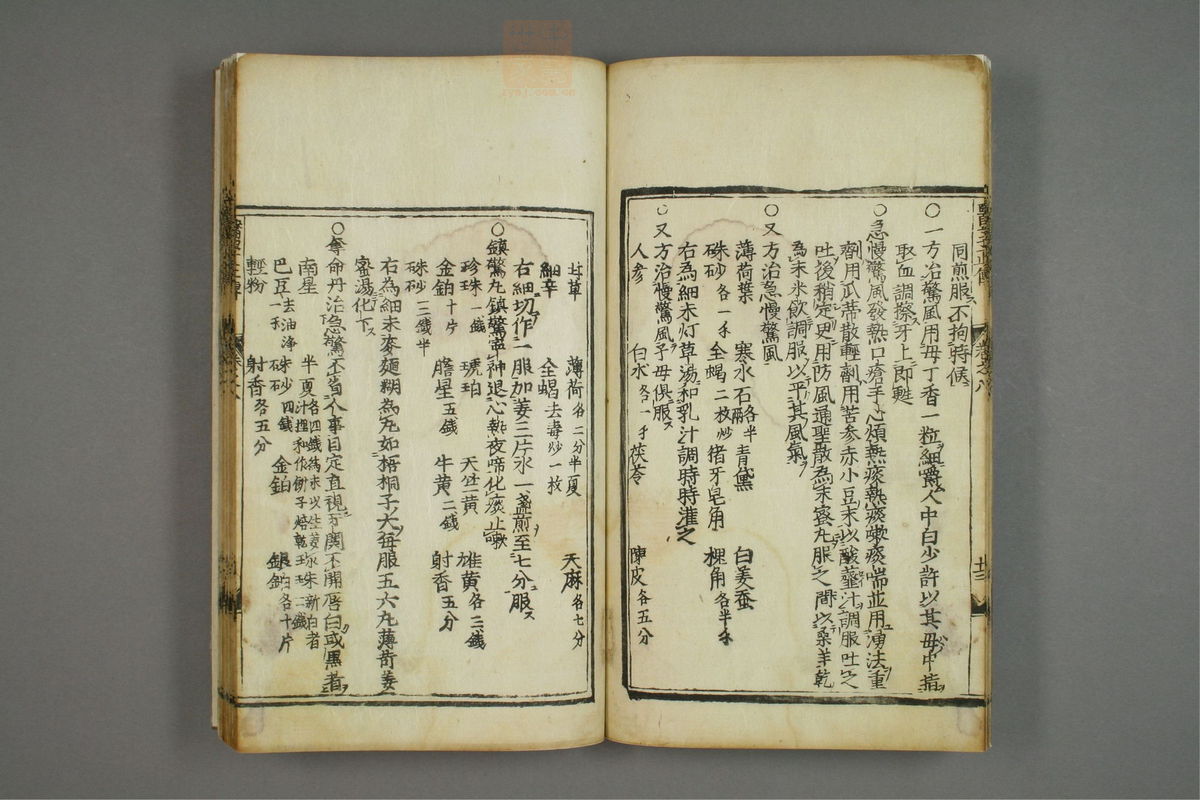 同煎服不拘時候
○一方治驚風用母丁香一粒細嚼人中白少許以其母中指
取血調擦牙上即甦
○急慢驚風發熱口瘡手心煩熱痰熱痰嗽痰喘並用湧法重
劑用瓜蒂散輕劑用苦参赤小豆末以酸虀汁調服吐之
吐後稍定更用防風通聖散為末蜜丸服之間以桑羊乾
為末米飲調服以平其風氣
○又方治急慢驚風
薄荷葉 寒水石各半兩 青黛 白姜蚕
硃砂各一千 全蝎二枚炒 猪牙皂角 槐角各半千
右為細末灯草湯和乳汁調時時灌之
○又方治慢驚風子母俱服
人参 白朮各一千 茯苓 陳皮各五分
甘草 薄荷各二分半 半夏 天麻各七分
細辛 全蝎去毒炒一枚
右細切作一服加姜三片水一盞煎至七分服
○鎮驚丸鎮驚寧神退心熱夜啼化痰止嗽
珍珠一錢 琥珀 天竺黄 雄黄各三錢
金鉑十片 膽星五錢 牛黄二錢 射香五分
硃砂三錢半
右為細末麥麵糊為丸如梧桐子大每服五六丸薄荷姜
蜜湯化下
○奪命丹治急驚不省人事目定直視牙関不開唇白或黒者
南星 半夏各四錢為末以生姜
巴豆去油淨一千 硃砂四錢 金鉑 銀鉑各十片
輕粉 射香各五分